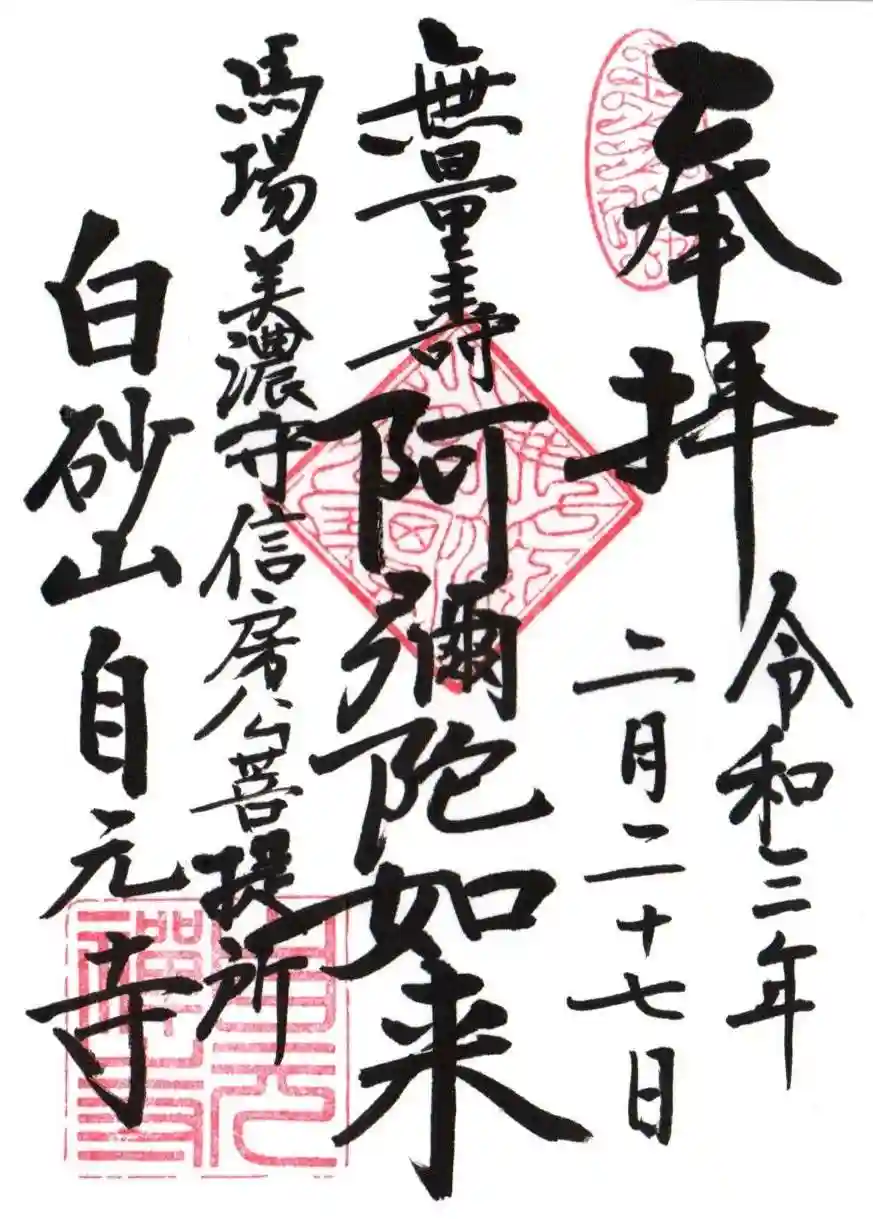 奉拝
令和三年
二月二十七日
無量壽
阿彌陀如来
馬場美濃守信房公菩提所
白砂山
自元寺